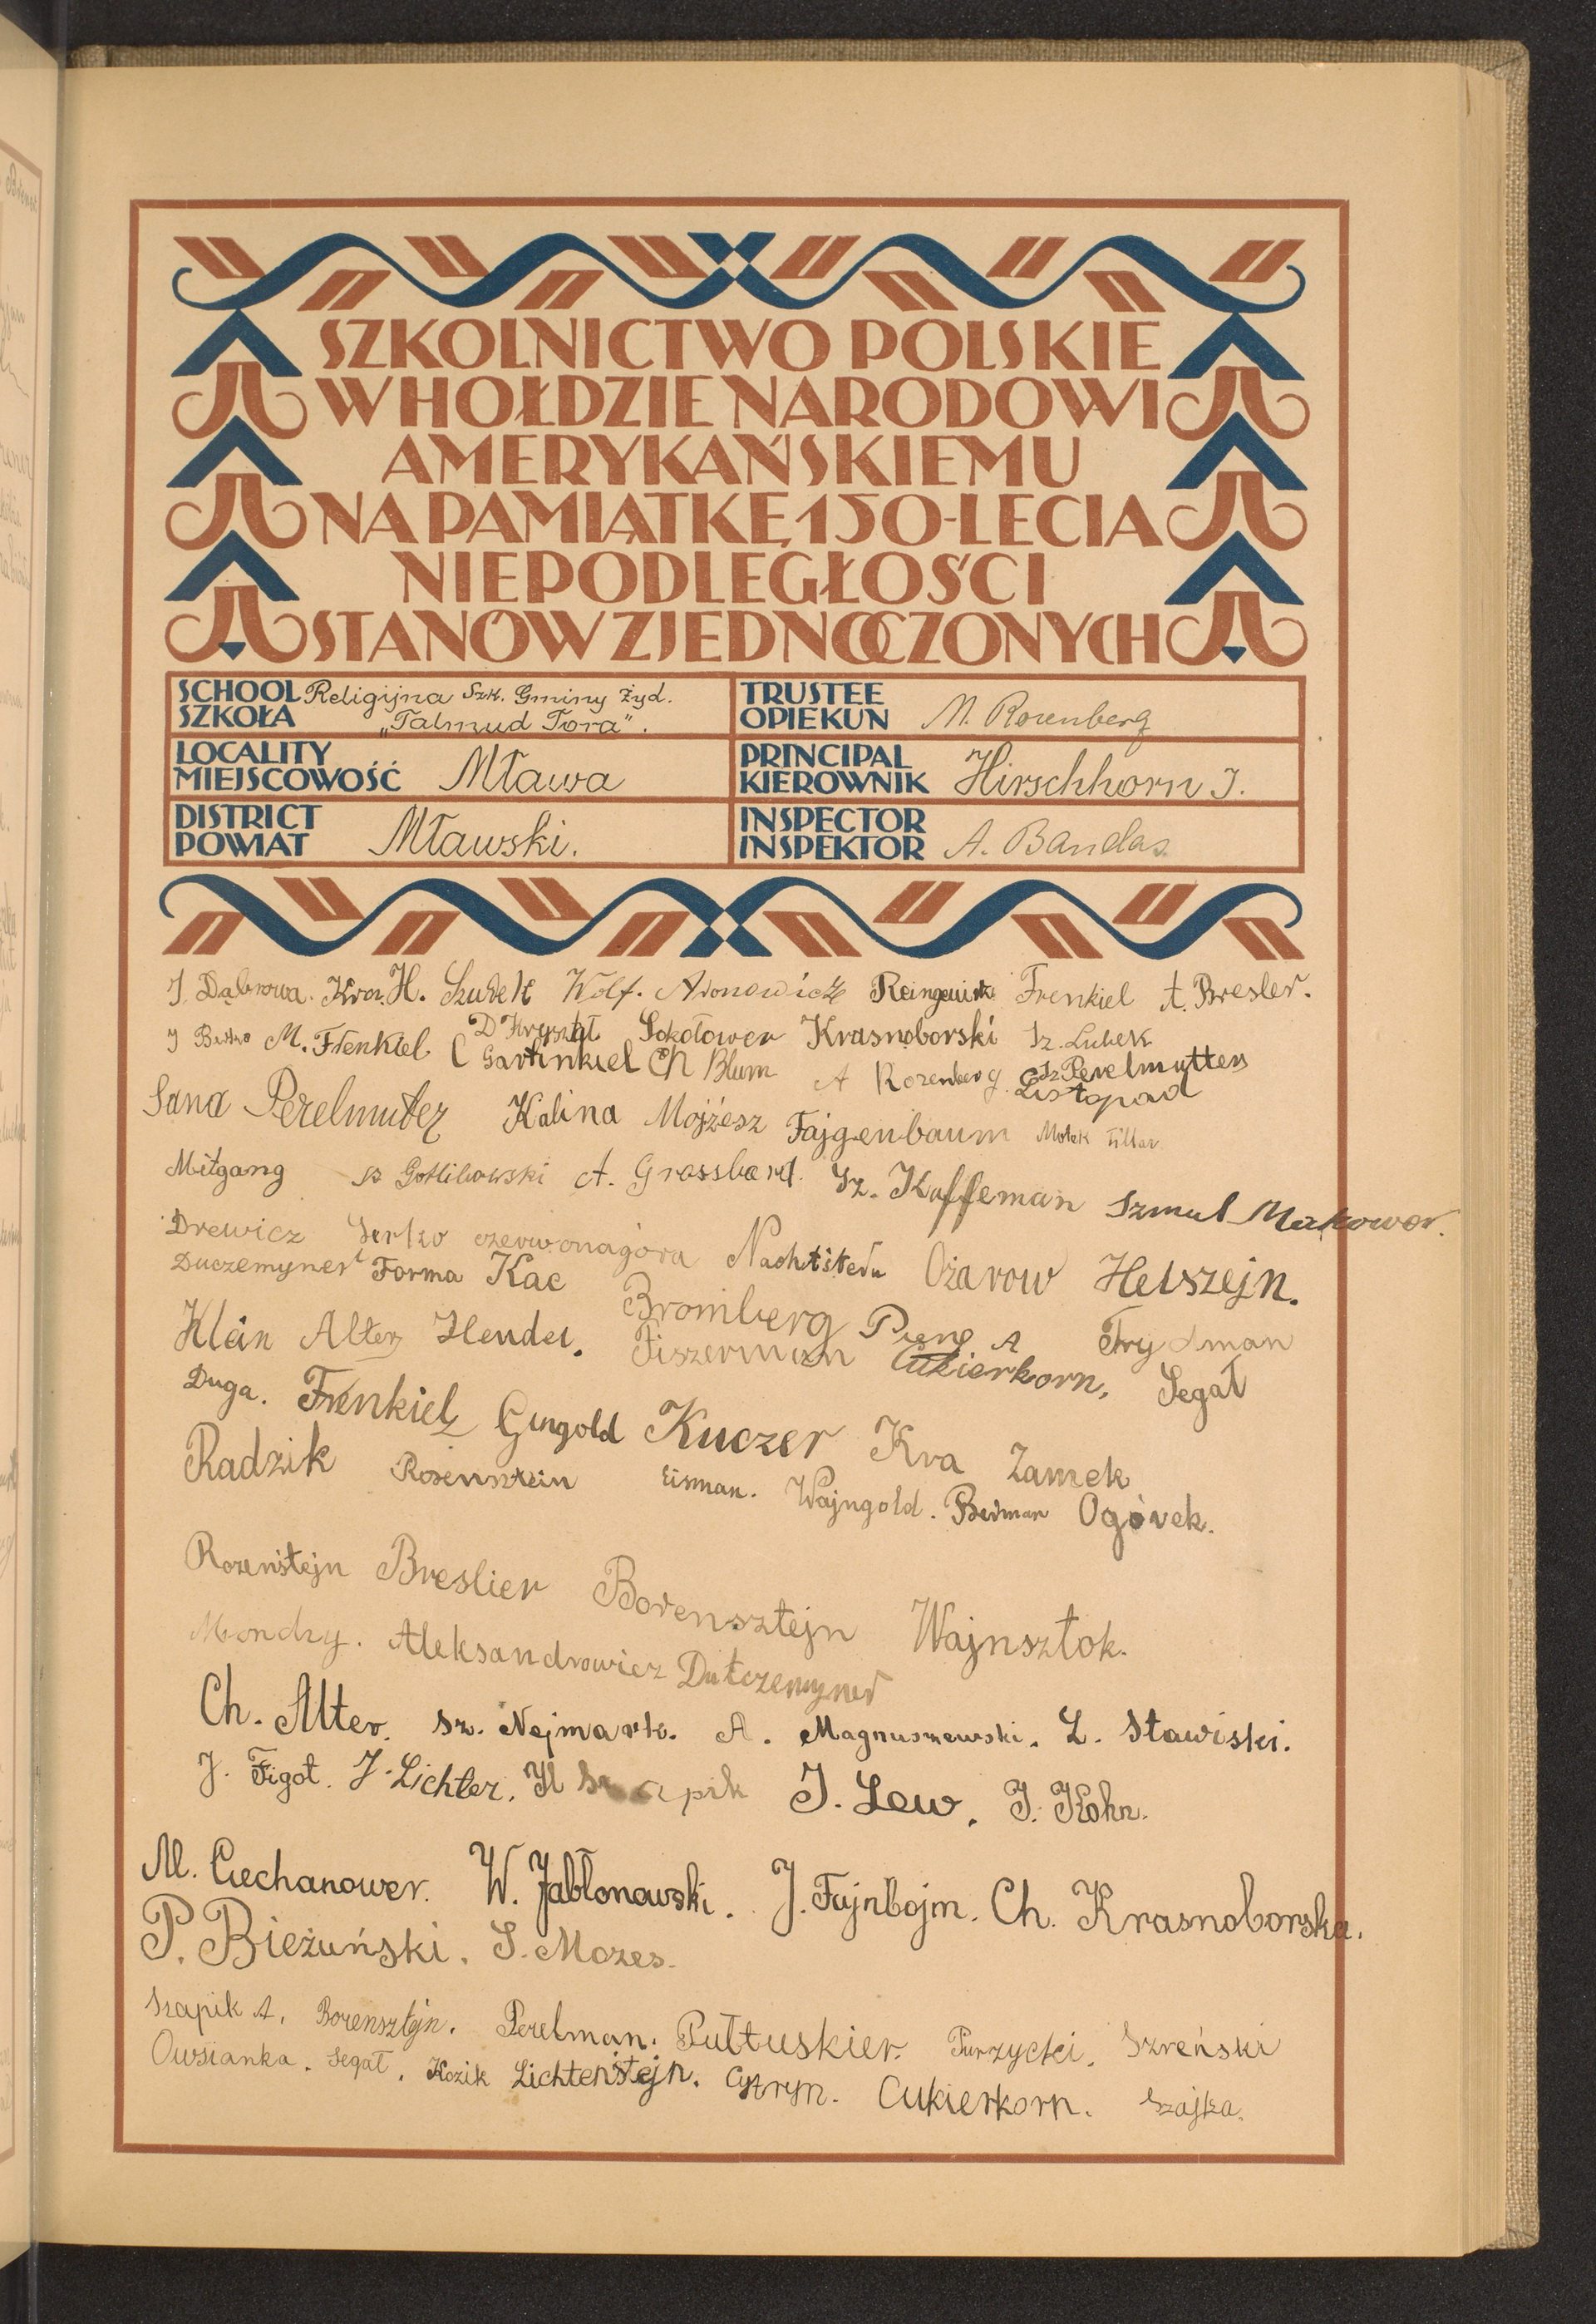 SZKOLNICTWO POLSKIE
W HOŁDZIE NARODOWI
AMERYKAŃSKIEMU
NA PAMIĄTKĘ 150-LECIA
NIEPODLEGŁOŚCI
STANÓW ZJEDNOCZONYCH
SCHOOL SZKOŁA Religijna Szk. Gminy Żyd. „Talmud Tora".
TRUSTEE OPIEKUN M. Rozenberg
LOCALITY MIEJSCOWOŚĆ Mława
PRINCIPAL KIEROWNIK Hirschhorn J.
DISTRICT POWIAT Mławski.
INSPECTOR INSPEKTOR A. Bandas
J. Dąbrowa. Kra. H. Szulek Wolf. Aronowicz Frenkiel A. Bresler.
M. Frenkiel D Kryształ Sokołower Krasnoborski Sz. Lubek
Garfinkiel Ch Blum A Rozenberg Sz Perelmutter
Listopad
Sana Perelmuter Kalina Mojżesz Fajgenbaum
Mitgang Gotlibowski A. Grossbard. Sz. Koffeman Szmul Makower.
Drewicz Serko czerwonagóra Nachtsztern Ożarow Helszejn.
Duczemyner Forma Kac Bromberg A Frydman
Klein Alter Hendel. Fiszerman Cukierkorn, Segał
Duga. Frenkiel Gingold Kuczer Kra Zamek
Radzik Rosensztein Eisman. Wajngold. Berman Ogórek.
Rozensztejn Breslier Borensztejn Wajnsztok.
Mondry. Aleksandrowicz Dutczemyner
Ch. Alter. Sz. Nejmark. A. Magnuszewski. L. Stawiski.
J. Figot. J. Lichter. J. Lew. J. Kohn.
M. Ciechanower. W. Jabłonowski. J. Fajnbojm. Ch. Krasnoborska.
P. Bieżuński. S. Mozes.
Szapik A. Borensztejn. Perelman. Pułtuskier. Purzycki. Szreński
Owsianka. Segał. Kozik Lichtensztejn. Cytryn. Cukierkorn. Szajka.